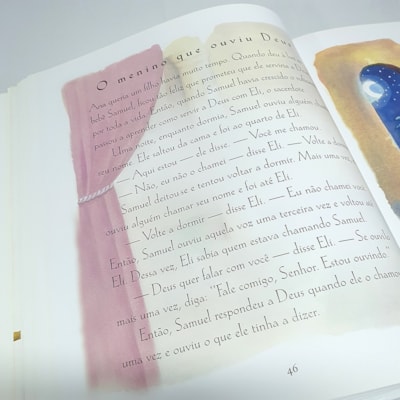 O menino que ouviu Deus
Ana queria um filho havia muito tempo. Quando deu à luz o
bebê Samuel, ficou tão feliz que prometeu que ele serviria a Deus
por toda a vida. Então, quando Samuel havia crescido o
passou a aprender como servir a Deus com Eli, o sacerdote
Uma noite, enquanto dormia, Samuel ouviu alguém
seu nome. Ele saltou da cama e foi ao quarto de Eli.
— Aqui estou — ele disse. — Você me chamou
— Não, eu não o chamei — disse Eli. — Volte a
Samuel deitou-se e tentou voltar a dormir. Mais uma
ouviu alguém chamar seu nome e foi até Eli.
— Volte a dormir — disse Eli. — Eu não chamei
Então, Samuel ouviu aquela voz uma terceira vez e voltou
Eli. Dessa vez, Eli sabia quem estava chamando Samuel.
— Deus quer falar com você — disse Eli. — Se
mais uma vez, diga: "Fale comigo, Senhor. Estou ouvindo."
Então, Samuel respondeu a Deus quando ele o
uma vez e ouviu o que ele tinha a dizer.
46